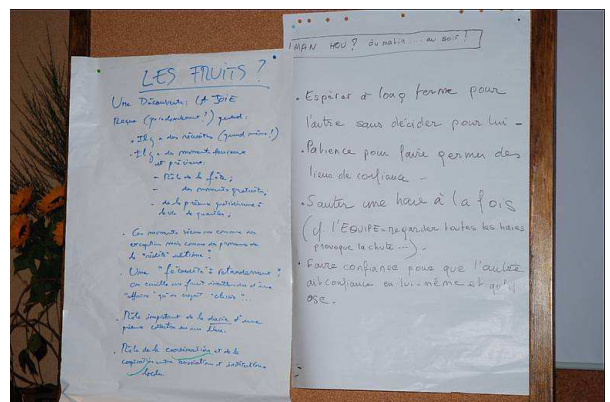 LES FRUITS ?
Une Découverte : LA JOIE
Reçue (paradoxalement ?) quand :
• Il y a des réussites (quand même !)
• Il y a des moments heureux
et précieux :
- Rôle de la fête ;
- des moments gratuits,
- de la présence quotidienne à
la vie de quartier ;
• Ces moments vécus non comme une
exception mais comme des prémices de
la "réalité" ultime.
• Une "fécondité" à retardement :
on cueille un fruit
"affaire" qu'on croyait "classée".
• Rôle important de la durée d'une
présence collective en un lieu.
• Rôle de la coordination et de la
coopération entre associations et institutions
locales
MAN HOU ? du matin .... au soir !
• Espérer à long terme pour
l'autre sans décider pour lui -
• Patience pour faire germer des
liens de confiance -
• Sauter une haie à la fois
(cf l'EQUIPE - regarder toutes les haies
provoque la chute ...) -
• Faire confiance pour que l'autre
ait confiance en lui-même et qu'il
ose.